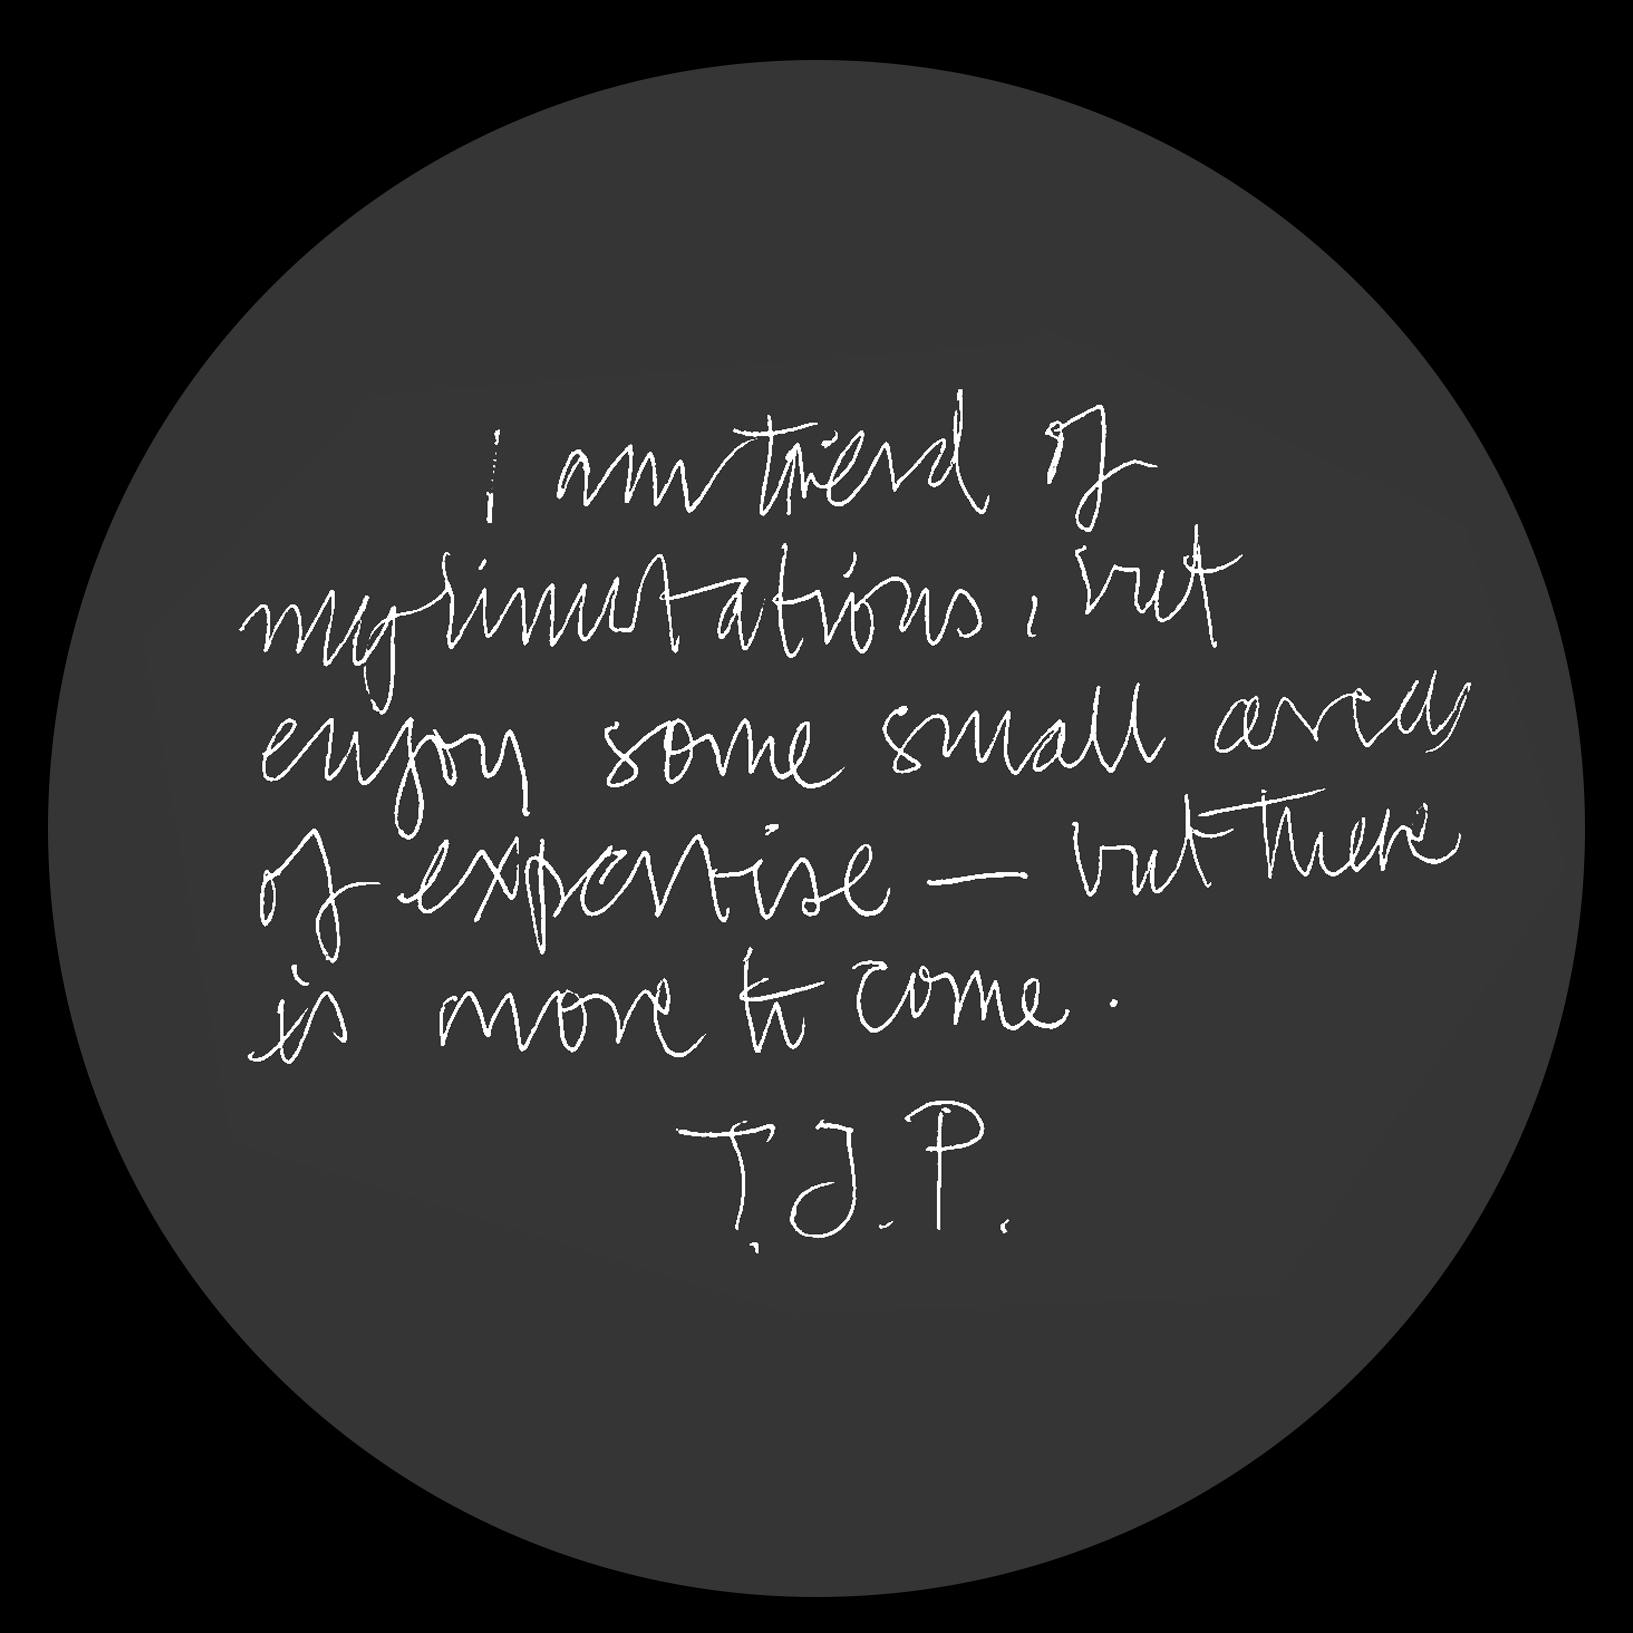 I am tired of
my limitations, but
enjoy some small areas
of expertise — but there
is more to come.
T.J.P.